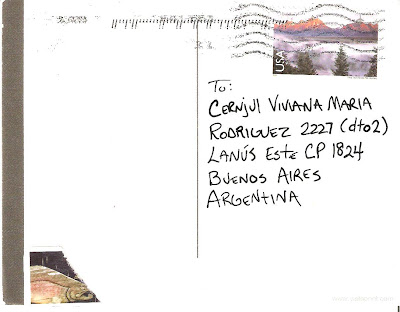 USA
To:
CERNJUL VIVIANA MARIA
RODRIGUEZ 2227 (dto2)
LANÚS ESTE CP 1824
BUENOS AIRES
ARGENTINA